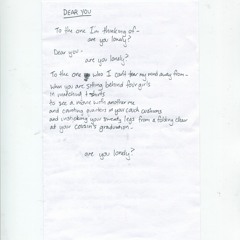 DEAR YOU
To the one I'm thinking of-
are you lonely?
Dear you-
are you lonely?
To the one who I can't tear my mind away from-
when you are sitting behind four girls
in matching t-shirts
to see a movie with another me
and counting quarters in your couch cushions
and unsticking your sweaty legs from a folding chair
at your cousin's graduation-
are you lonely?